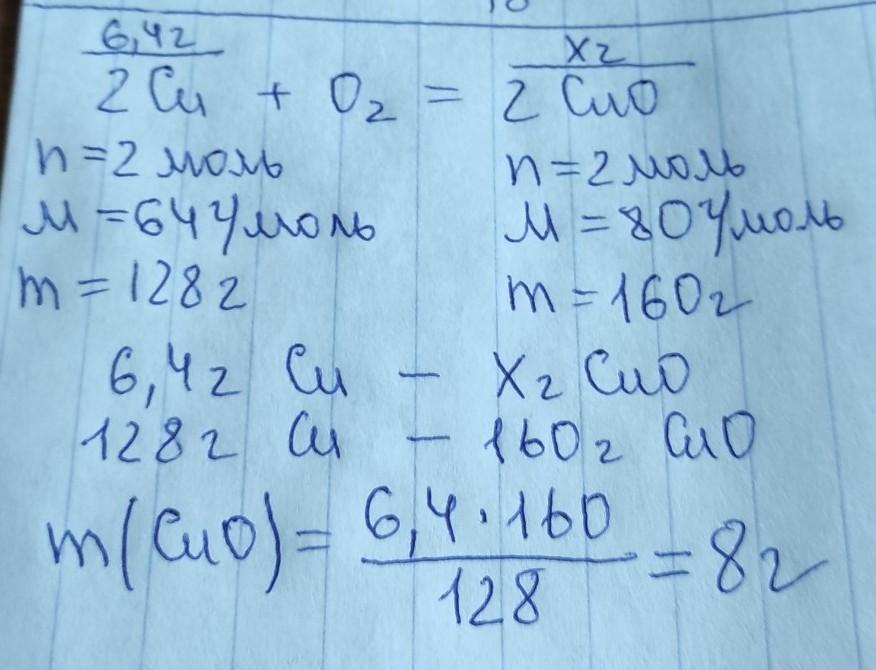 6,4г xг
2Cu + O₂ = 2CuO
n=2моль n=2моль
M=64г/моль M=80г/моль
m=128г m=160г
6,4г Cu – xг CuO
128г Cu – 160г CuO
m(CuO)= 6,4·160 / 128 =8г